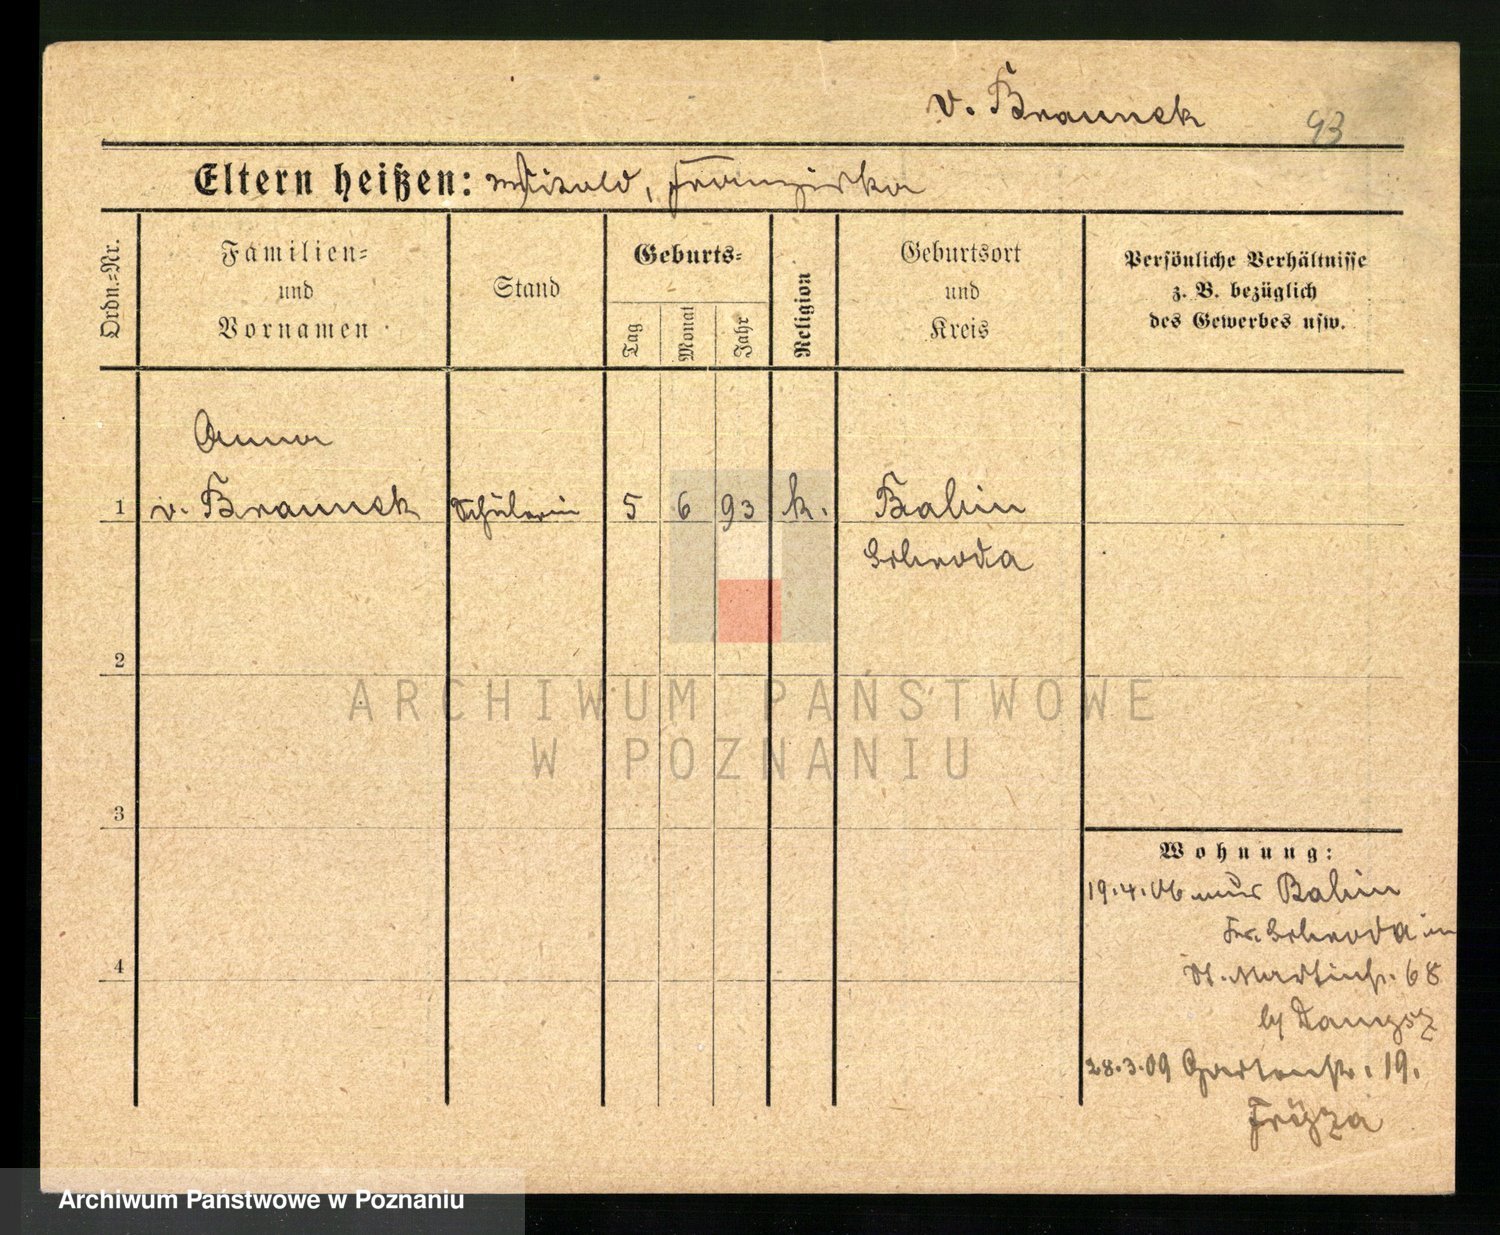 v. Braunek
93
Eltern heißen: Witold, Franziska
Ordn.-Nr.
Familien-
und
Vornamen
Stand
Geburts-
Tag
Monat
Jahr
Religion
Geburtsort
und
Kreis
Persönliche Verhältnisse
z. B. bezüglich
des Gewerbes usw.
Anna
1 v. Braunek Schülerin 5 6 93 k. Babin
Schroda
2
3
4
ARCHIWUM PAŃSTWOWE
W POZNANIU
Wohnung:
19.4.06 aus Babin
Kr. Schroda in
St. Martinstr. 68
28.3.09 Gartenstr. 19.
Archiwum Państwowe w Poznaniu